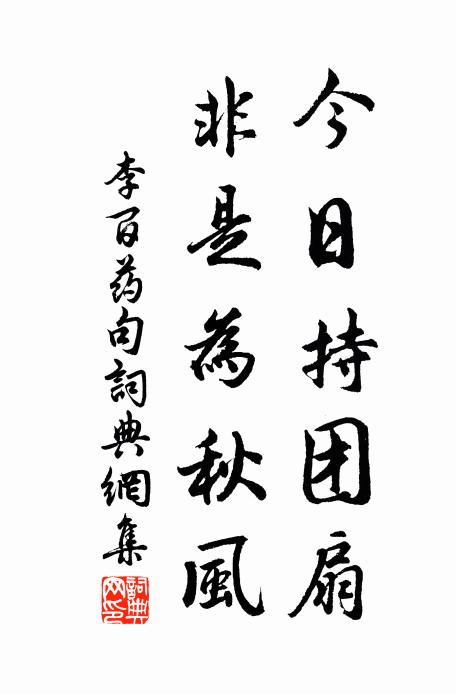 今日持团扇
非是為秋風
李百药句詞典網集
詞典網印